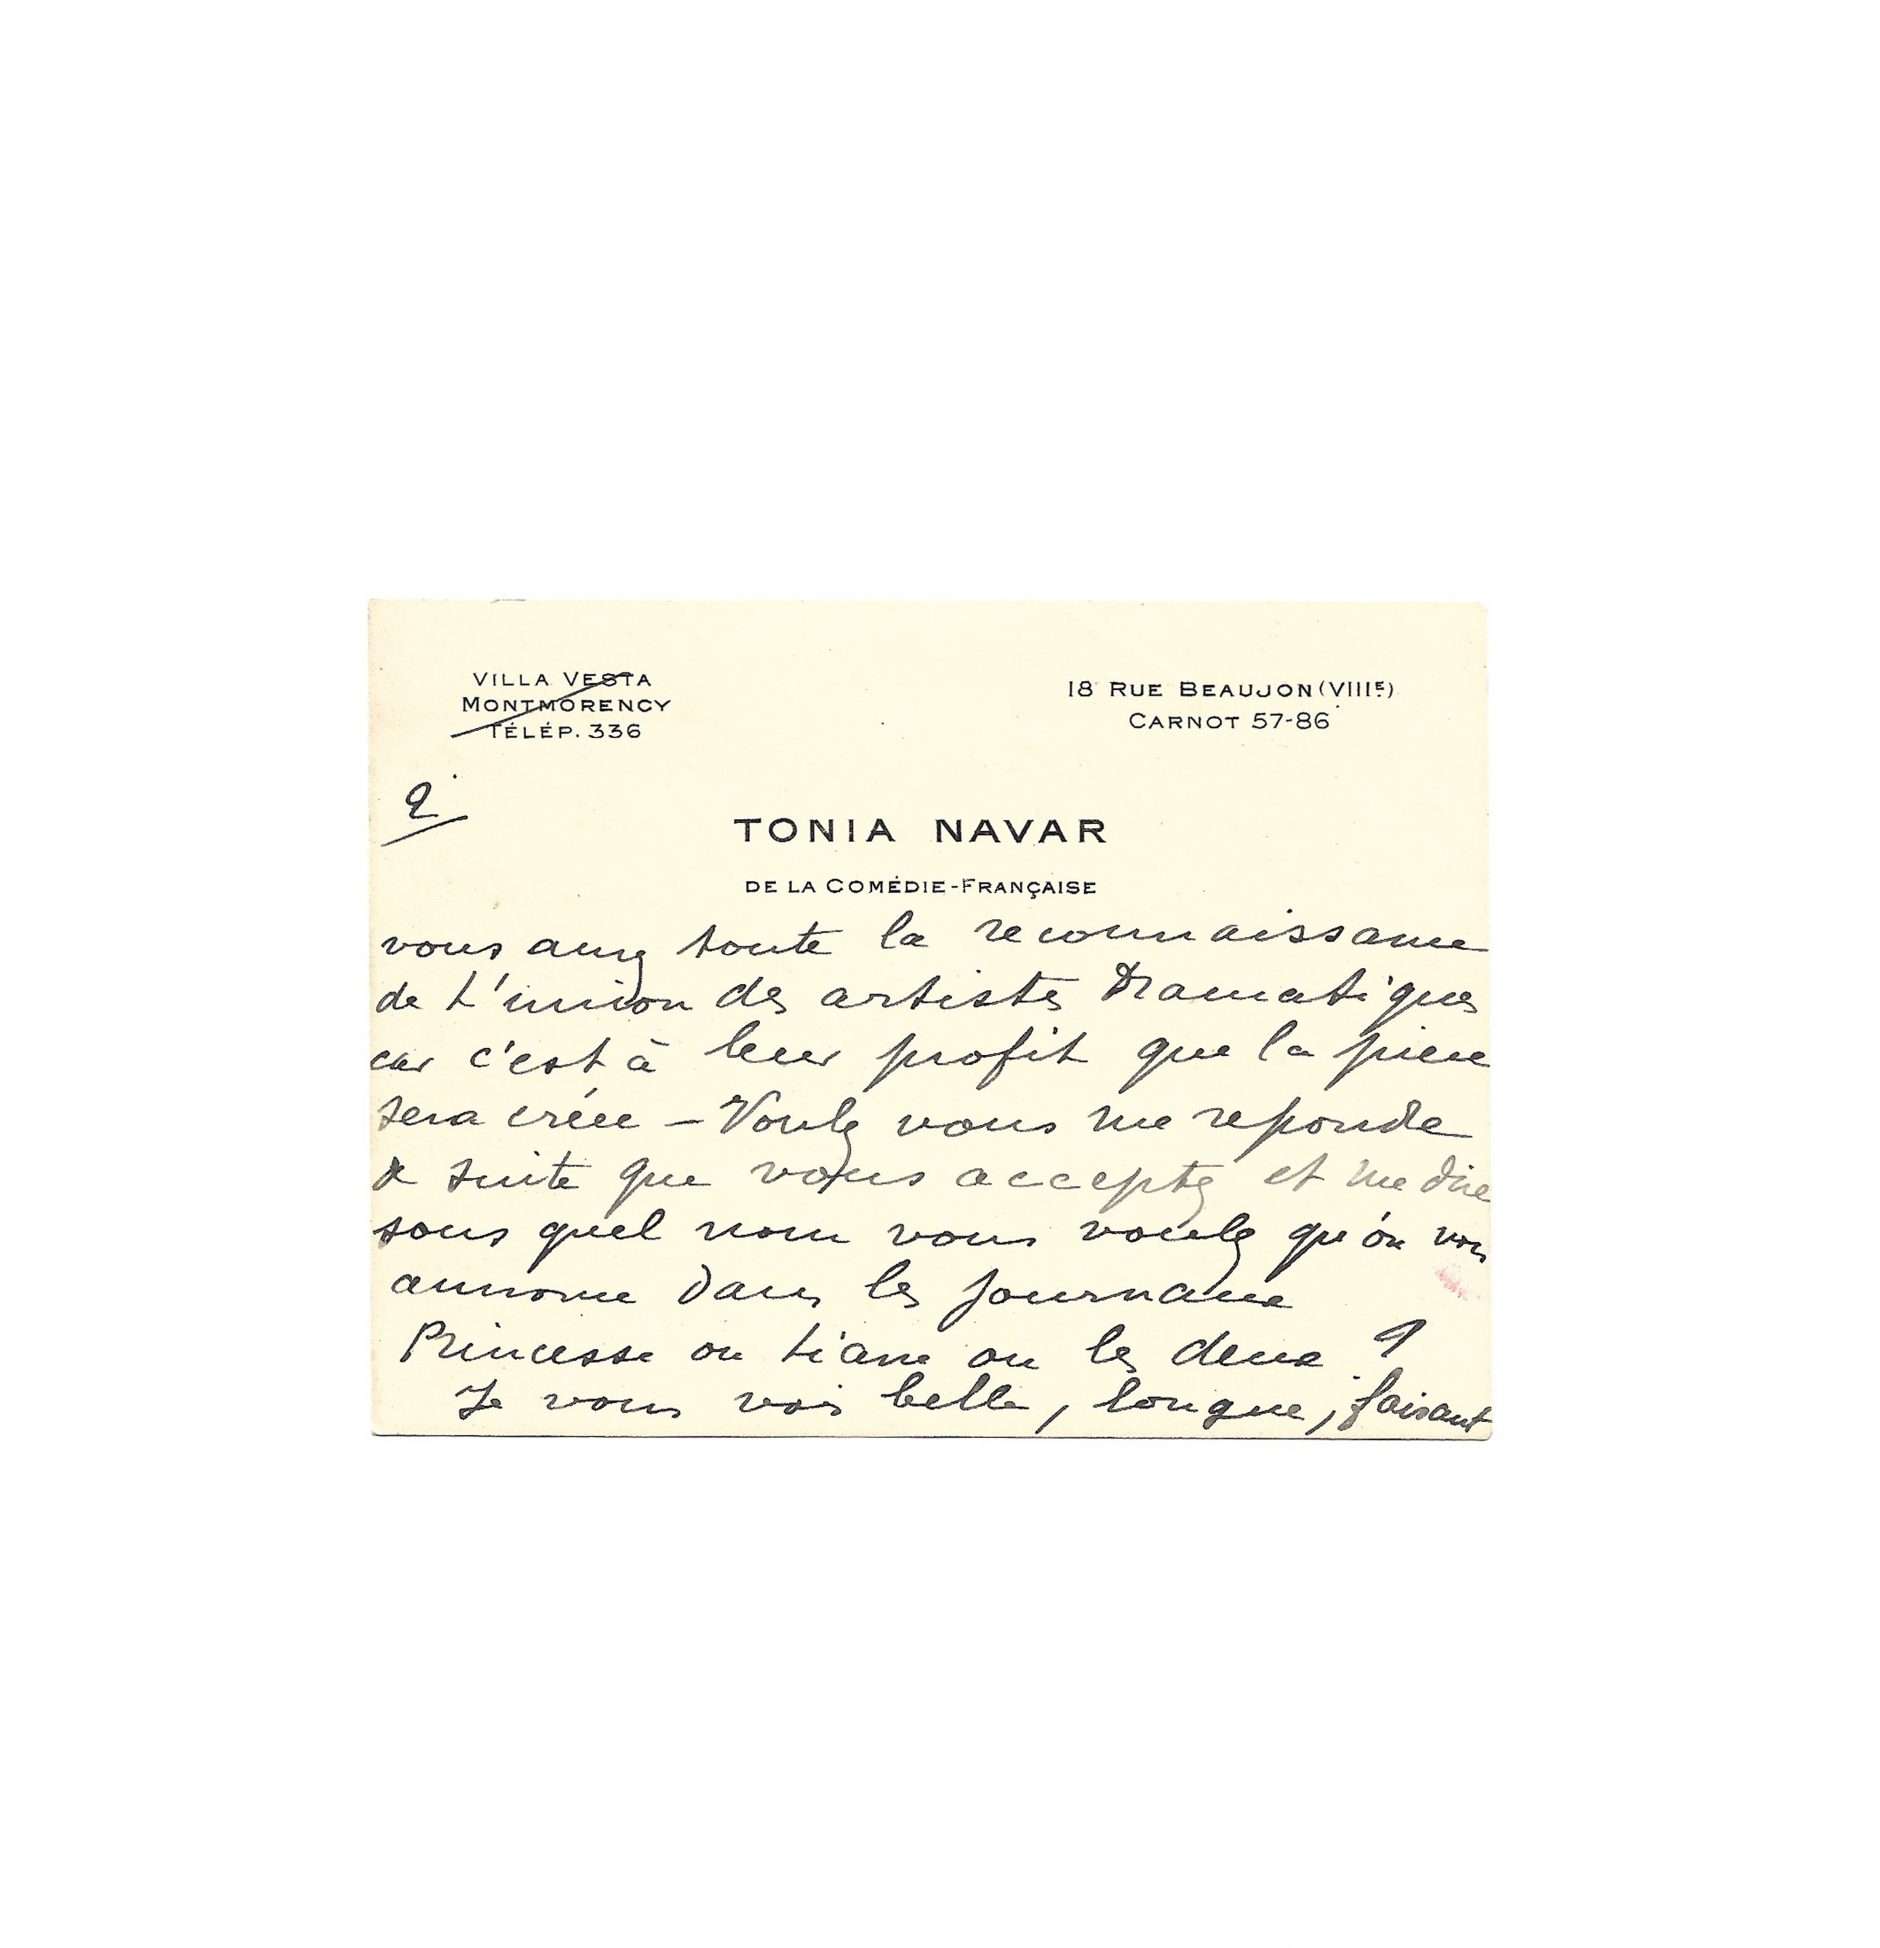 VILLA VESTA
MONTMORENCY
TÉLÉP. 336
18 RUE BEAUJON (VIIIE)
CARNOT 57-86
2
TONIA NAVAR
DE LA COMÉDIE-FRANÇAISE
vous aurez toute la reconnaissance
de L'union des artistes Dramatiques
car c'est à leur profit que la piece
sera créee - Voulez vous me reponde
de suite que vous acceptez et me dire
sous quel nom vous voulez qu'on vous
annonce dans les journaux
Princesse ou Liane ou les deux ?
Je vous vois belle, longue, faisant